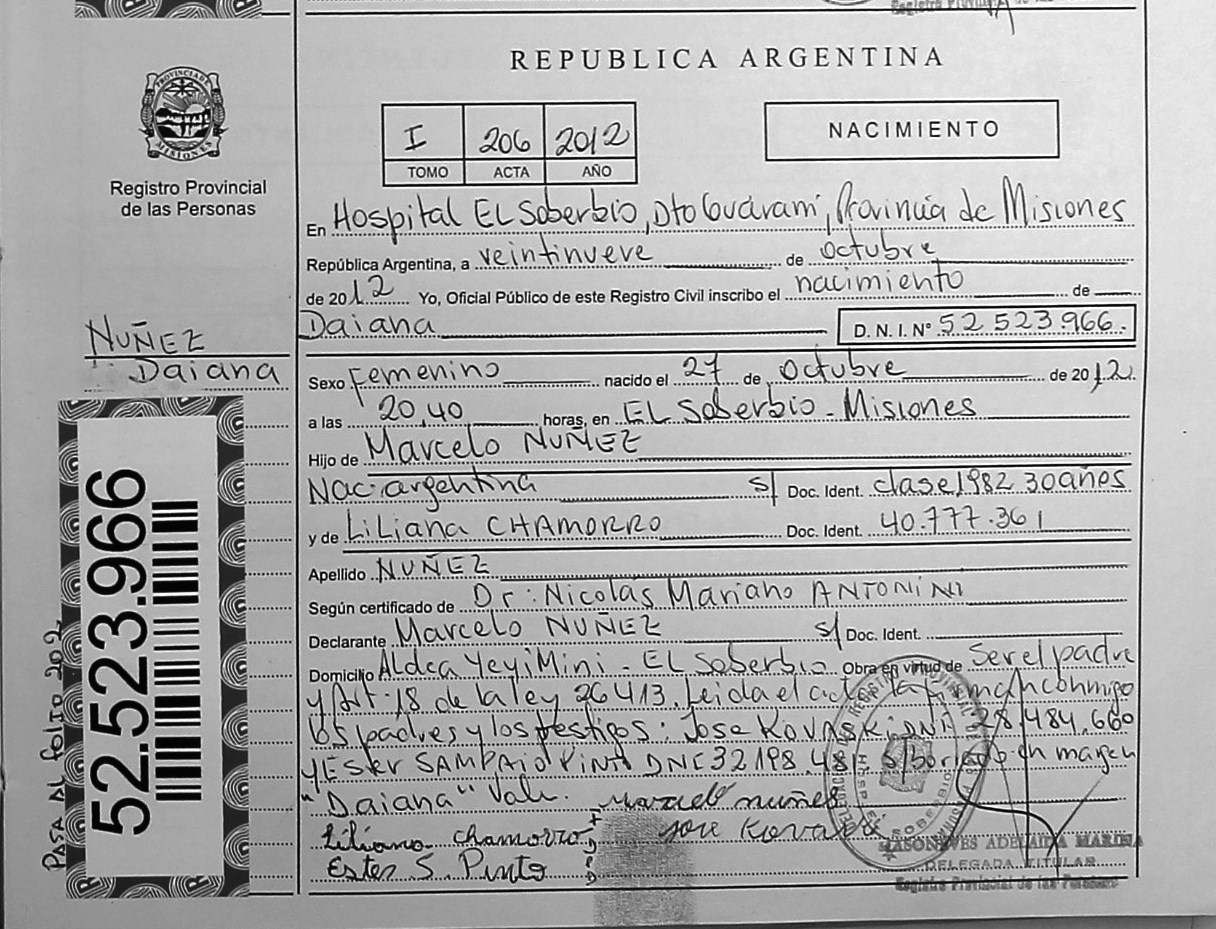 REPUBLICA ARGENTINA
PROVINCIA DE MISIONES
Registro Provincial
de las Personas
I 206 2012
TOMO ACTA AÑO
NACIMIENTO
En Hospital EL Soberbio, Dto Guarami, Provincia de Misiones
República Argentina, a veintinueve de octubre
de 2012 Yo, Oficial Público de este Registro Civil inscribo el nacimiento de
Daiana D.N.I. Nº 52 523.966.
NUÑEZ
Daiana
Sexo Femenino nacido el 27 de Octubre de 2012
a las 20,40 horas, en EL Soberbio - Misiones
Hijo de Marcelo NUÑEZ
Nac. argentina s/ Doc. Ident. clase 1982 30 años
y de LiLiana CHAMORRO Doc. Ident. 40.777.361
Apellido NUÑEZ
Según certificado de Dr: Nicolas Mariano ANTONINI
Declarante Marcelo NUÑEZ s/ Doc. Ident.
Domicilio Aldea Yeyi Mini - EL Soberbio Obra en virtud de Ser el padre
y Art. 18 de la ley 26 413. Leida el acta la conmigo
los padres y los testigos: Jose KOVASKI DNI 28.484.660
y Ester SAMPAIO PINTO DNI 32 198 s/ borrado en margen
"Daiana" Vale. Marcelo nuñes
Liliana Chamorro Jose
Ester S. Pinto
ADELAIDA MARINA
DELEGADA TITULAR
Registro Provincial de las Personas
52.523.966
PASA AL FOLIO 202